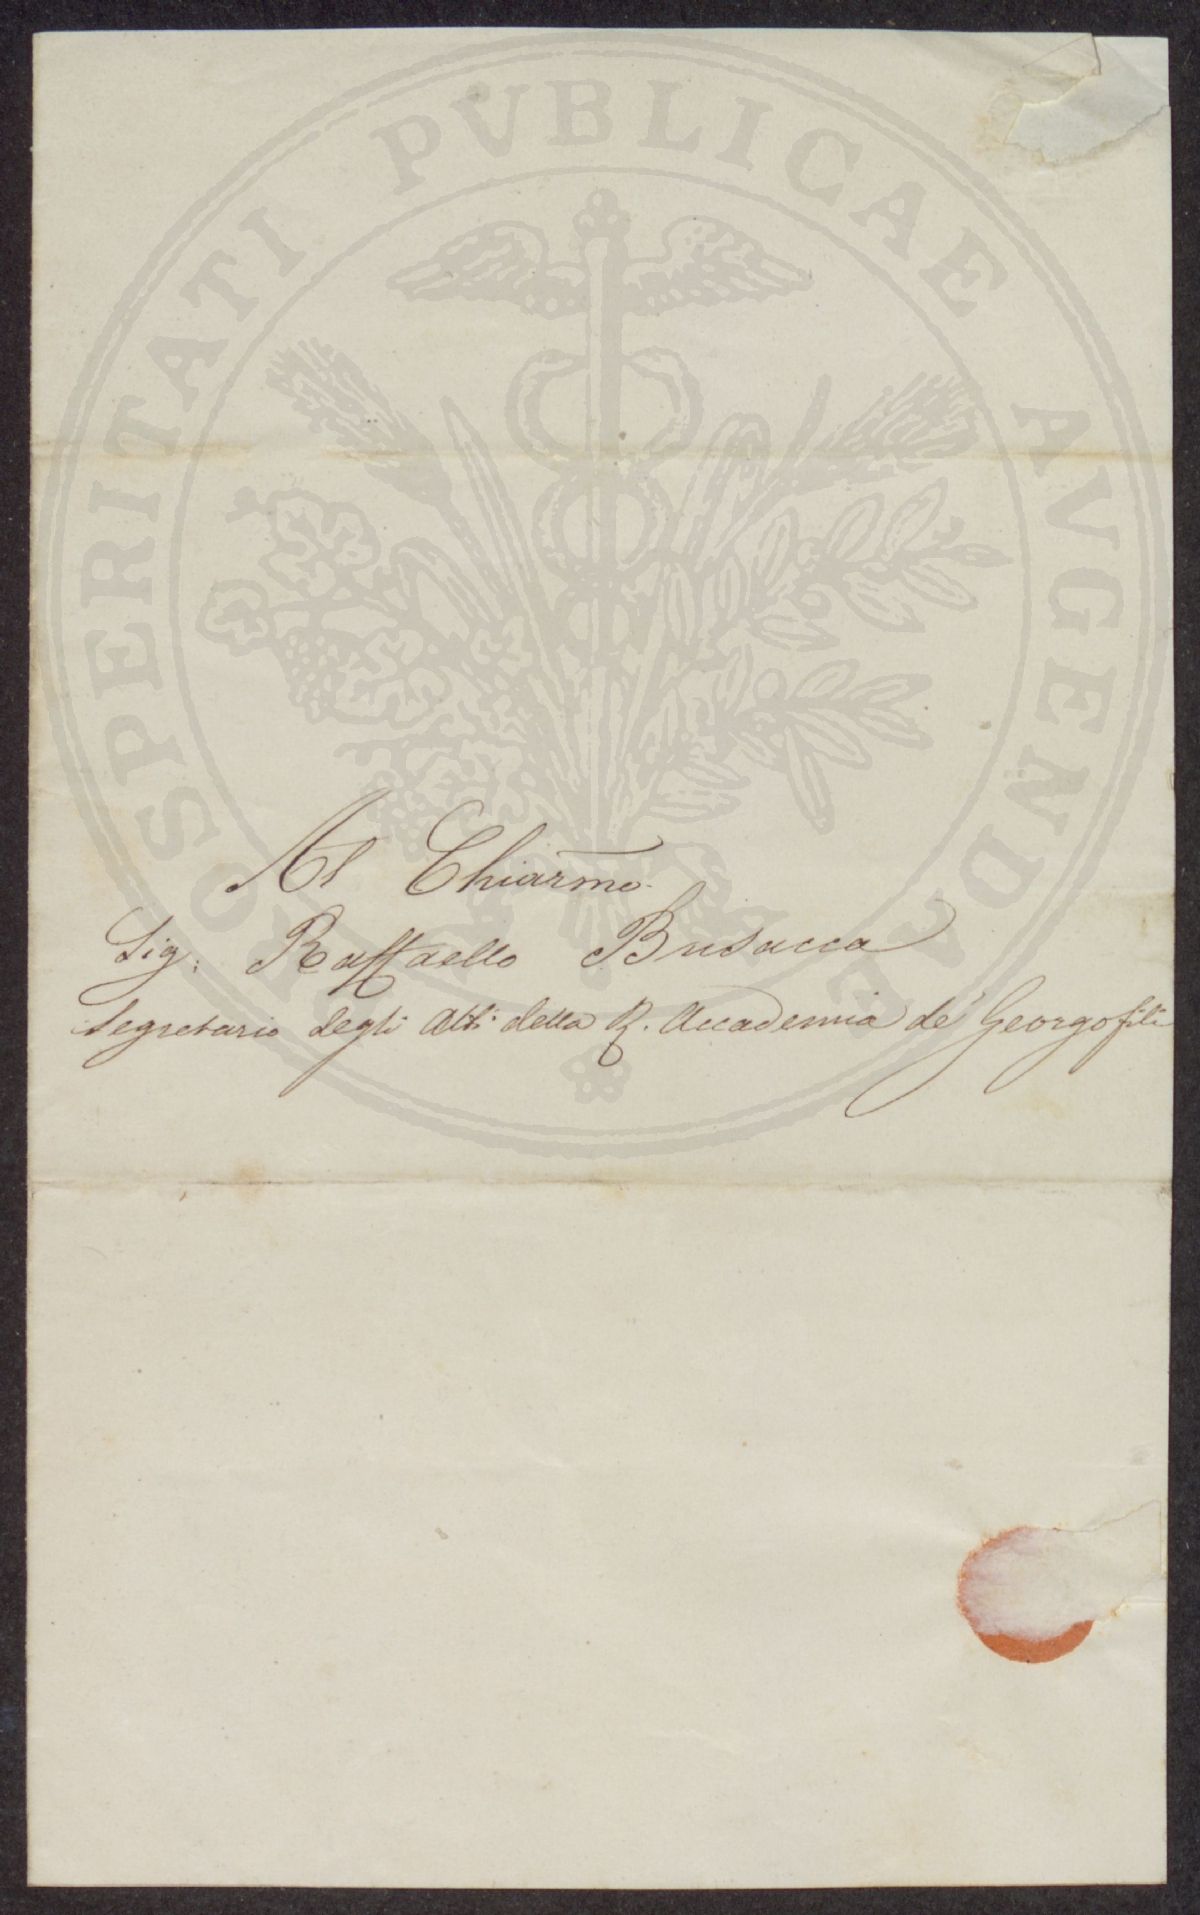 PROSPERITATI PVBLICAE AVGENDAE
Al Chiarmo.
Sig: Raffaello Busacca
Segretario degli Atti della R. Accademia de' Georgofili